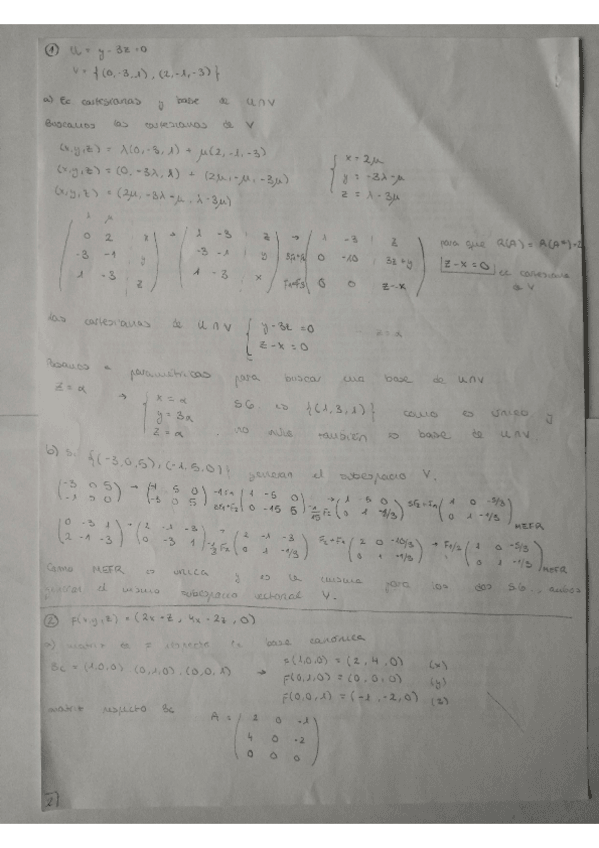 ① U = y - 3z = 0
V = {(0,-3,1), (2,-1,-3)}
a) Ec cartesianas y base de U∩V
Buscamos las cartesianas de V
(x,y,z) = λ(0,-3,1) + μ(2,-1,-3)
(x,y,z) = (0,-3λ,λ) + (2μ,-μ,-3μ)
(x,y,z) = (2μ,-3λ-μ,λ-3μ)
{ x = 2μ
y = -3λ-μ
z = λ-3μ
λ μ
( 0 2 | x
-3 -1 | y
1 -3 | z )
→ ( 1 -3 | z
-3 -1 | y
1 -3 | x )
→ ( 1 -3 | z
0 -10 | 3z+y
0 0 | z-x )
para que R(A) = R(A*) = 2
z-x=0
ec cartesiana
de V
Las cartesianas de U∩V { y-3z=0
z-x=0
z=α
Pasamos a paramétricas para buscar una base de U∩V
z=α → { x=α
y=3α
z=α
SG es {(1,3,1)} como es único y
no nulo también es base de U∩V.
b) {(-3,0,5), (-1,5,0)} generan el subespacio V.
Como MEFR es única y es la misma para los dos SG, ambos
generan el mismo subespacio vectorial V.
② F(x,y,z) = (2x-z, 4x-2z, 0)
a) matriz de F respecto de base canónica
Bc = (1,0,0) (0,1,0) (0,0,1) →
F(1,0,0) = (2,4,0) (x)
F(0,1,0) = (0,0,0) (y)
F(0,0,1) = (-1,-2,0) (z)
matriz respecto Bc
A = ( 2 0 -1
4 0 -2
0 0 0 )